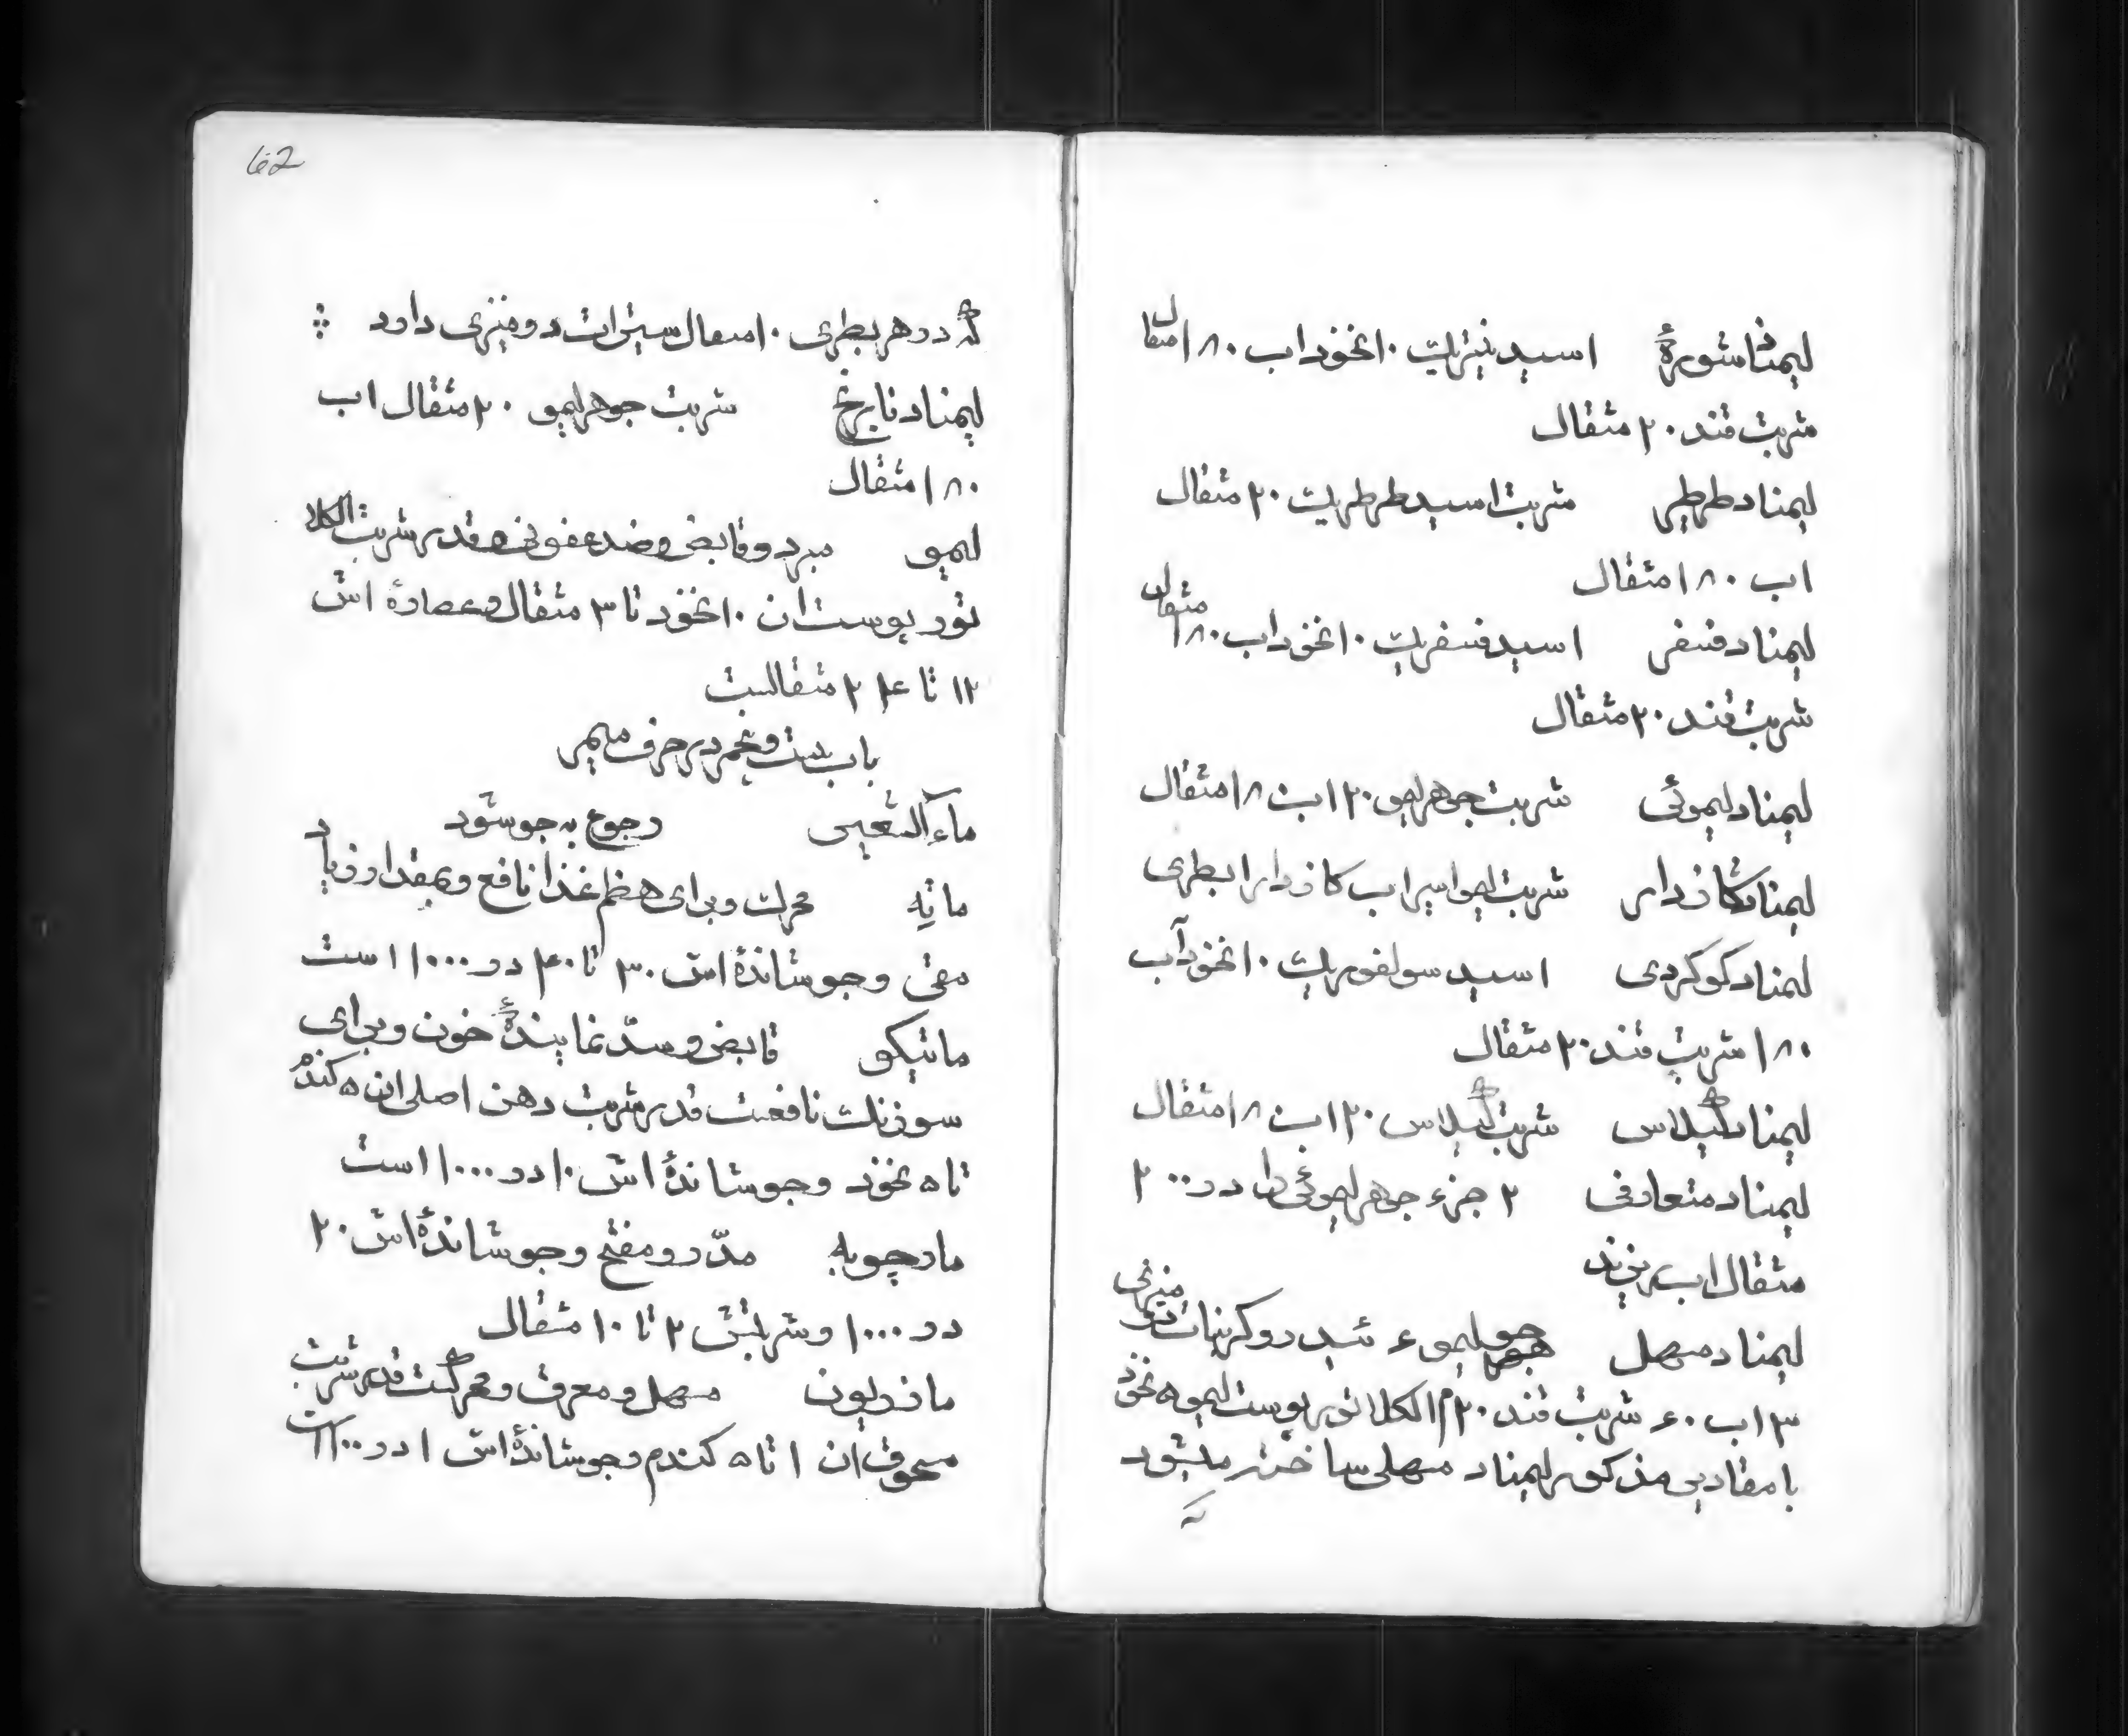 لیمناد شورهٔ اسید نیتریک ۱۰ نخود اب ۱۸۰ مثقال
شربت قند ۲۰ مثقال
لیمناد طرطیر شربت اسید طرطریک ۲۰ مثقال
اب ۱۸۰ مثقال
لیمناد فسفری اسید فسفریک ۱۰ نخود اب ۱۸۰ مثقال
شربت قند ۲۰ مثقال
لیمناد لیموئی شربت جوهر لیمو ۲۰ اب ۱۸ مثقال
لیمناد گازدار شربت لیمو اب گازدار ابطری
لیمناد کوکردی اسید سولفوریک ۱۰ نخود آب
۱۸۰ شربت قند ۲۰ مثقال
لیمناد گیلاس شربت گیلاس ۲۰ اب ۱۸ مثقال
لیمناد متعارفی ۲ جزء جوهر لیموئی را در ۲۰۰
مثقال اب بریزند
لیمناد مسهل جوهر لیمو ۴ ئیدروکربنات دومنیزی
۳ اب ۴۰ شربت قند ۲۰ الکلاتور پوست لیمو ۵ نخود
با مقادیر مذکور لیمناد مسهلی ساخته میشود
62
که در هر بطری ۱۰ مثقال سیترات دومنیزی دارد
لیمناد نارنج شربت جوهر لیمو ۲۰ مثقال اب
۱۸۰ مثقال
لیمو مبرد و قابض و ضد عفونی و قدر شربت الکلا
تور پوست ان ۱۰ نخود تا ۳ مثقال و عصارهٔ اش
۱۲ تا ۲۴ مثقالست
باب بیست و پنجم در حرف میم
ماء الشعیر رجوع به جو شود
مانه محرک و برای هضم غذا نافع و بمقدار زیاد
مقی و جوشاندهٔ اش ۳۰ تا ۴۰ در ۱۰۰۰ است
ماتیکو قابض و سد نمایندهٔ خون و برای
سوزنک نافعست قدر شربت دهن اصلی ان ۵ کندم
تا ۵ نخود و جوشاندهٔ اش ۱۰ در ۱۰۰۰ است
مارچوبه مدّر و مفتح و جوشاندهٔ اش ۲۰
در ۱۰۰۰ و شربتش ۲ تا ۱۰ مثقال
مازریون مسهل و معرق و محرکست قدر شربت
مسحوق ان ۱ تا ۵ کندم و جوشاندهٔ اش ۱ در ۱۰۰ است